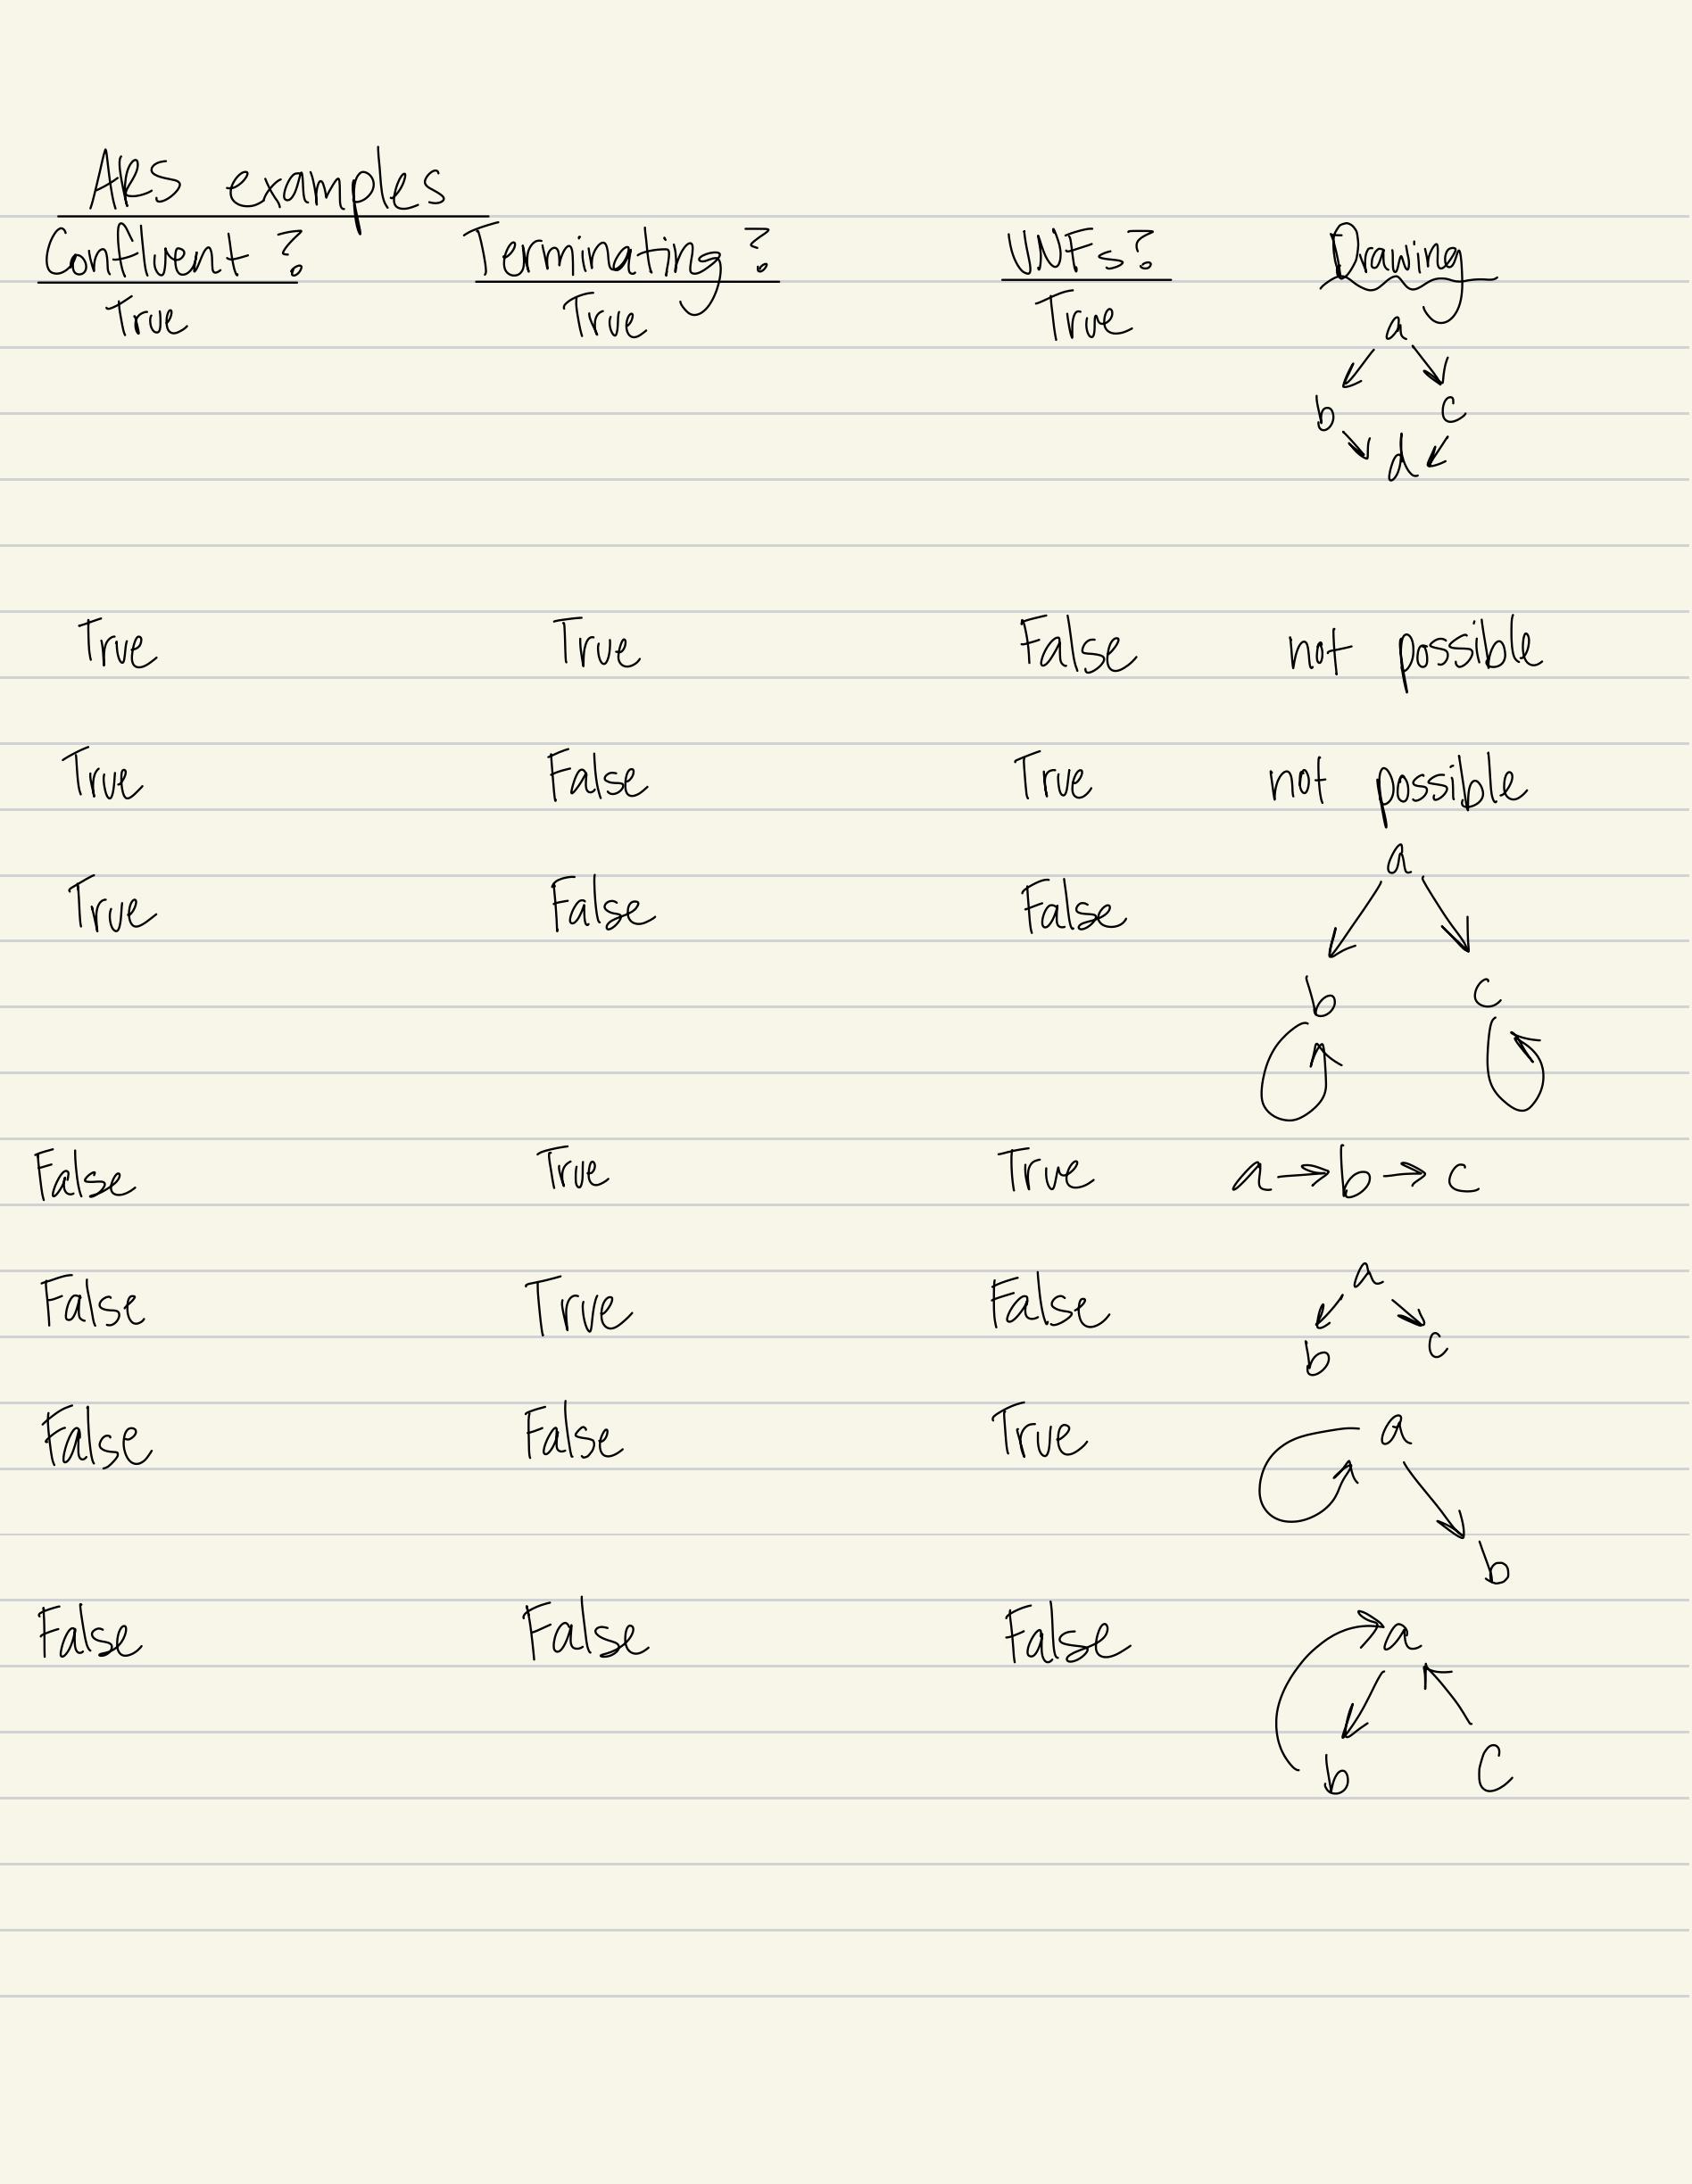 ARS examples
Confluent? Terminating? UNFs? Drawing
True True True a
b c
d
True True False not possible
True False True not possible
a
True False False
b c
False True True a → b → c
a
False True False
b c
False False True a
b
False False False a
b c